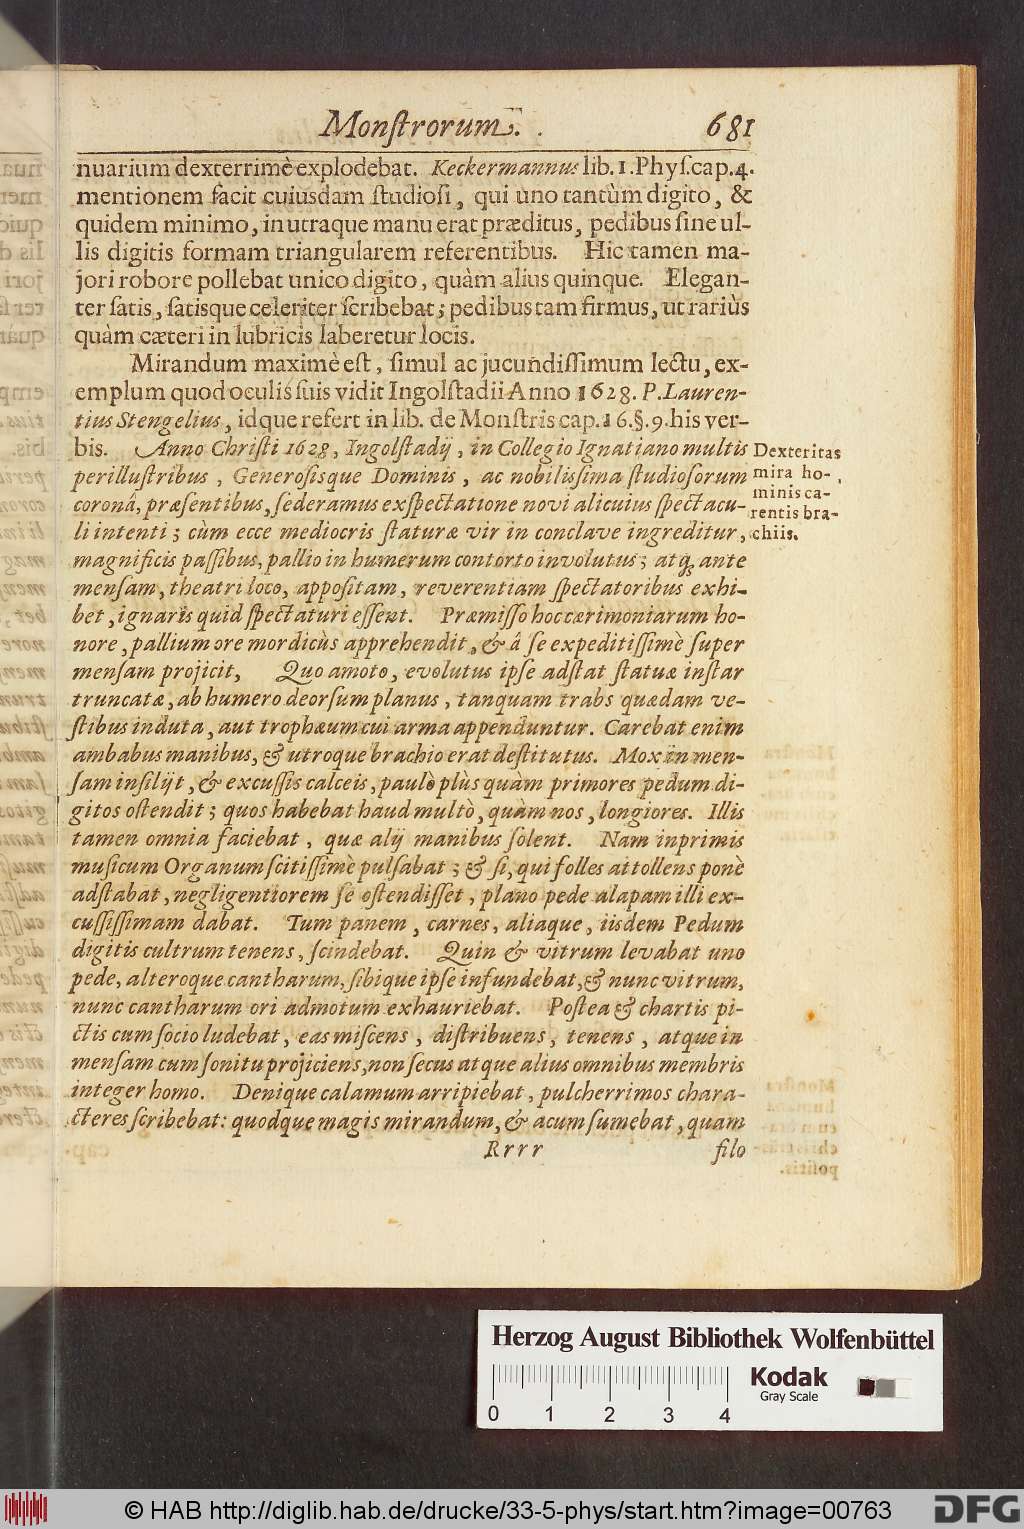 Monſtrorum. 681
nuarium dexterrimè explodebat. Keckermannus lib. 1. Phyſ. cap. 4.
mentionem facit cuiusdam ſtudioſi, qui uno tantùm digito, &
quidem minimo, in utraque manu erat præditus, pedibus ſine ul-
lis digitis formam triangularem referentibus. Hic tamen ma-
jori robore pollebat unico digito, quàm alius quinque. Elegan-
ter ſatis, ſatisque celeriter ſcribebat; pedibus tam firmus, ut rariùs
quàm cæteri in lubricis laberetur locis.
Mirandum maximè eſt, ſimul ac jucundiſſimum lectu, ex-
emplum quod oculis ſuis vidit Ingolſtadii Anno 1628. P. Lauren-
tius Stengelius, idque refert in lib. de Monſtris cap. 16. §. 9. his ver-
bis. Anno Chriſti 1628, Ingolſtadij, in Collegio Ignatiano multis
perilluſtribus, Generoſisque Dominis, ac nobiliſſima ſtudioſorum
coronâ, præſentibus, ſederamus exſpectatione novi alicuius ſpectacu-
li intenti; cùm ecce mediocris ſtaturæ vir in conclave ingreditur,
magnificis paſſibus, pallio in humerum contorto involutus; atqꝫ ante
menſam, theatri loco, appoſitam, reverentiam ſpectatoribus exhi-
bet, ignaris quid ſpectaturi eſſent. Præmiſſo hoc cærimoniarum ho-
nore, pallium ore mordicùs apprehendit, & â ſe expeditiſſimè ſuper
menſam projicit, Quo amoto, evolutus ipſe adſtat ſtatuæ inſtar
truncatæ, ab humero deorſum planus, tanquam trabs quædam ve-
ſtibus induta, aut trophæum cui arma appenduntur. Carebat enim
ambabus manibus, & utroque brachio erat deſtitutus. Mox in men-
ſam inſilijt, & excuſſis calceis, paulò plùs quàm primores pedum di-
gitos oſtendit; quos habebat haud multò, quàm nos, longiores. Illis
tamen omnia faciebat, quæ alij manibus ſolent. Nam inprimis
muſicum Organum ſcitiſſimè pulſabat; & ſi, qui folles attollens ponè
adſtabat, negligentiorem ſe oſtendiſſet, plano pede alapam illi ex-
cuſſiſſimam dabat. Tum panem, carnes, aliaque, iisdem Pedum
digitis cultrum tenens, ſcindebat. Quin & vitrum levabat uno
pede, alteroque cantharum, ſibique ipſe infundebat, & nunc vitrum,
nunc cantharum ori admotum exhauriebat. Poſtea & chartis pi-
ctis cum ſocio ludebat, eas miſcens, diſtribuens, tenens, atque in
menſam cum ſonitu projiciens, non ſecus atque alius omnibus membris
integer homo. Denique calamum arripiebat, pulcherrimos chara-
cteres ſcribebat: quodque magis mirandum, & acum ſumebat, quam
Rrrr filo
Dexteritas
mira ho-
minis ca-
rentis bra-
chiis.
Herzog August Bibliothek Wolfenbüttel
Kodak
Gray Scale
0 1 2 3 4
© HAB http://diglib.hab.de/drucke/33-5-phys/start.htm?image=00763
DFG